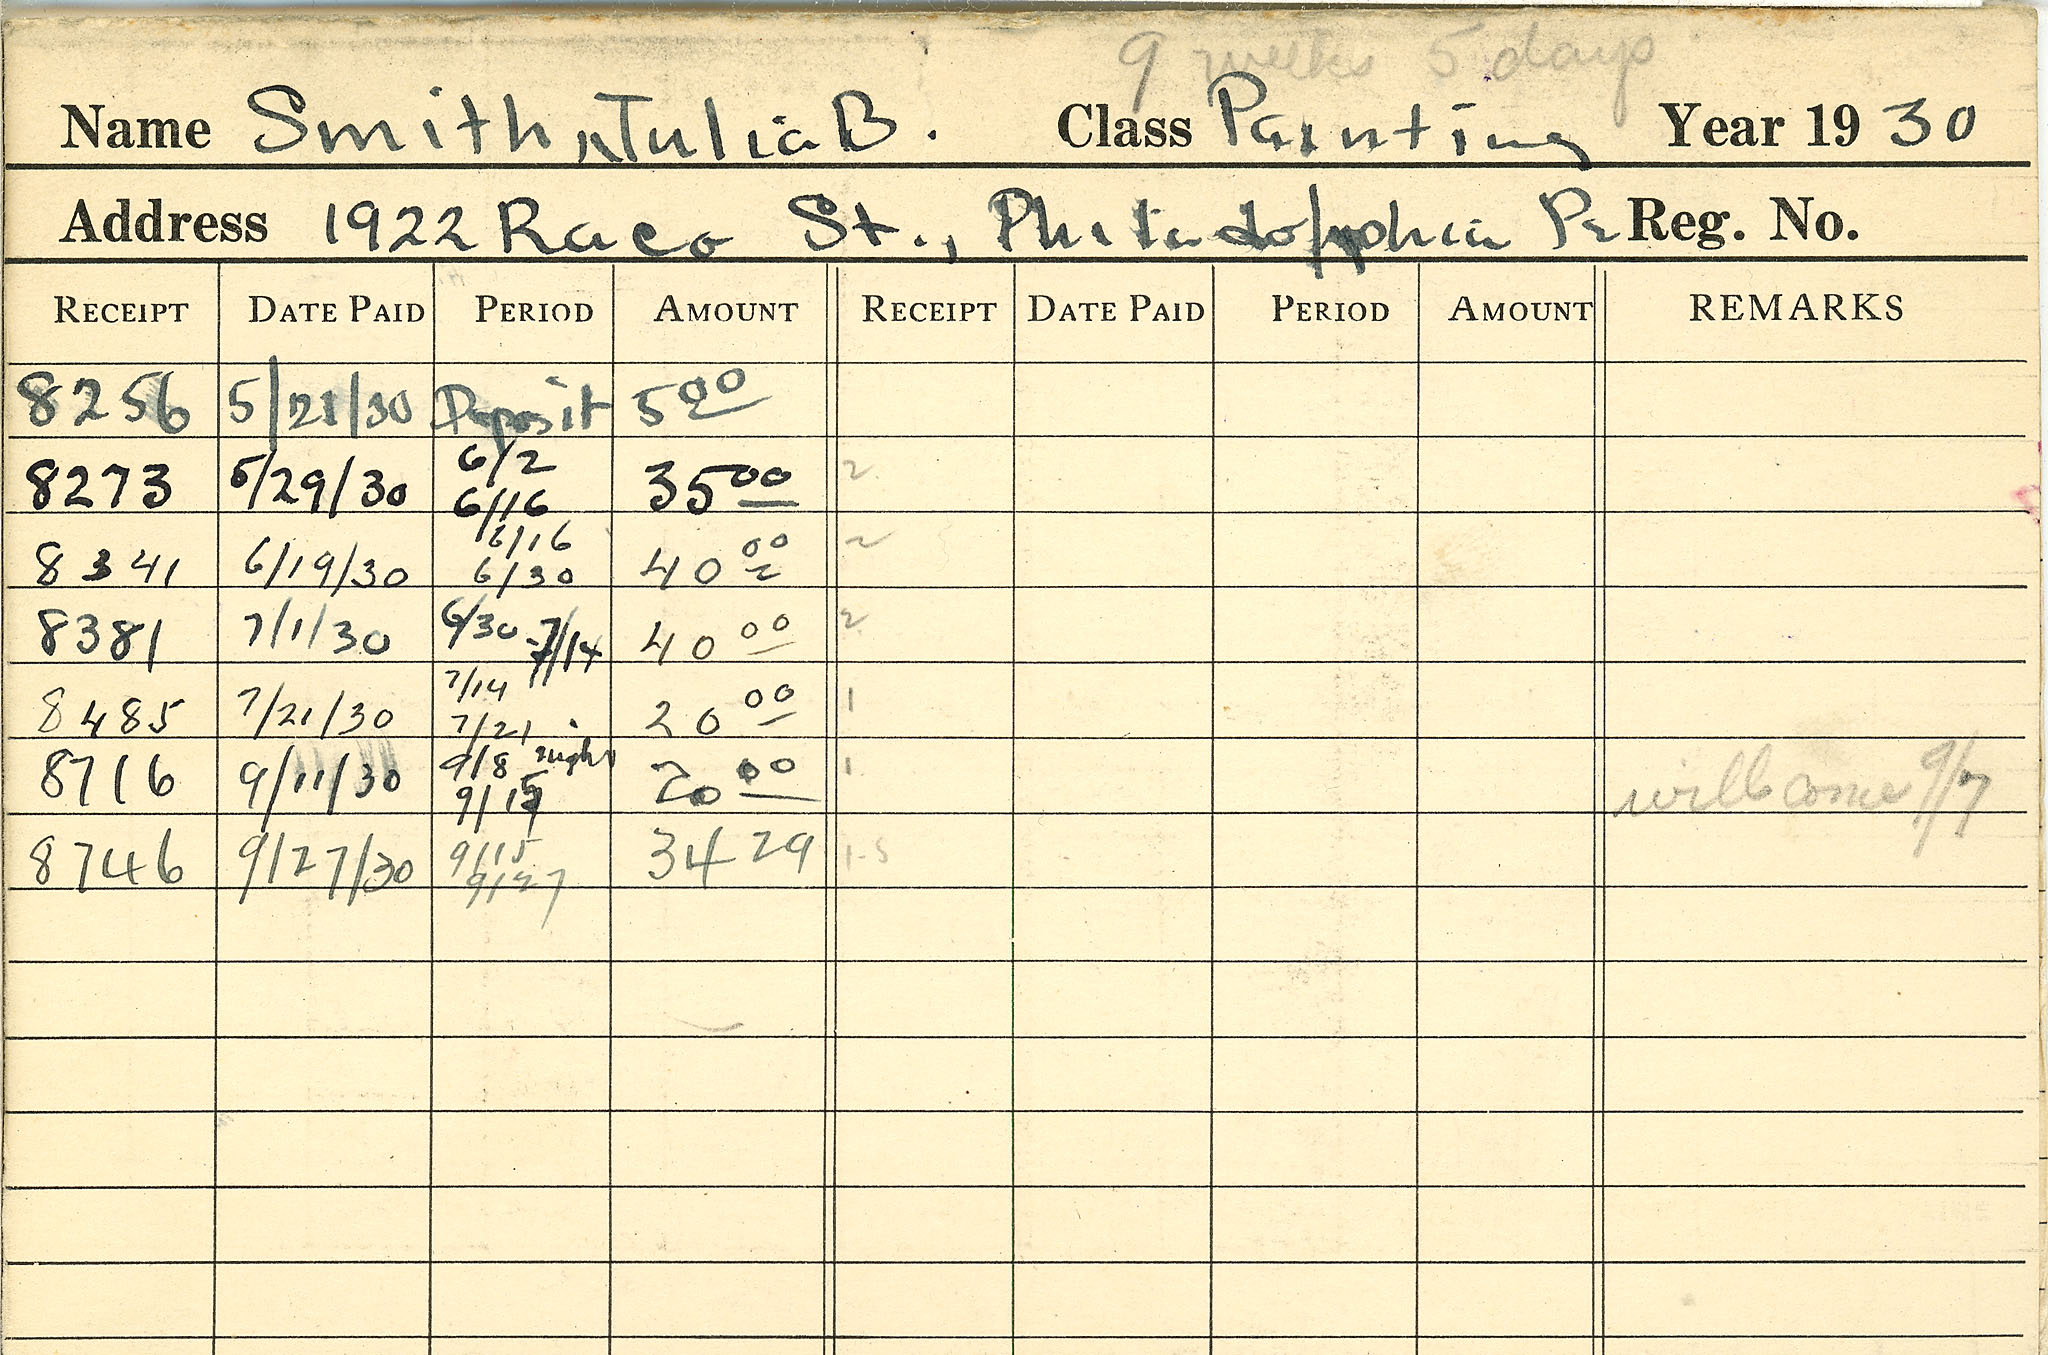 9 weeks 5 days
Name Smith, Julia B. Class Painting Year 19 30
Address 1922 Race St., Philadelphia Pa Reg. No.
RECEIPT DATE PAID PERIOD AMOUNT RECEIPT DATE PAID PERIOD AMOUNT REMARKS
8256 5/21/30 Deposit 5 00
8273 5/29/30 6/2 6/16 35 00 2
8341 6/19/30 6/16 6/30 40 00 2
8381 7/1/30 6/30 7/14 40 00 2
8485 7/21/30 7/14 7/21 20 00 1
8716 9/11/30 9/8 9/15 20 00 1 will come 9/7
8746 9/27/30 9/15 9/27 34 29 1-5